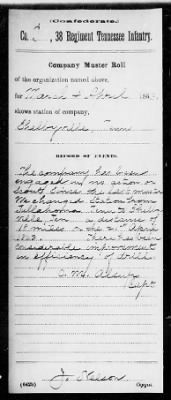 (Confederate.)
Co. , 38 Regiment Tennessee Infantry.
Company Muster Roll
of the organization named above,
for March & April 186 ,
shows station of company,
Shelbyville, Tenn
RECORD OF EVENTS.
The company has been
engaged in no action or
scout since the last muster
We changed station from
Tullahoma Tenn to Shelby
ville Ten a distance of
18 miles on the 21st April
1863. There has been
considerable improvement
in efficiency of drill
Capt
(642b) Copyist.